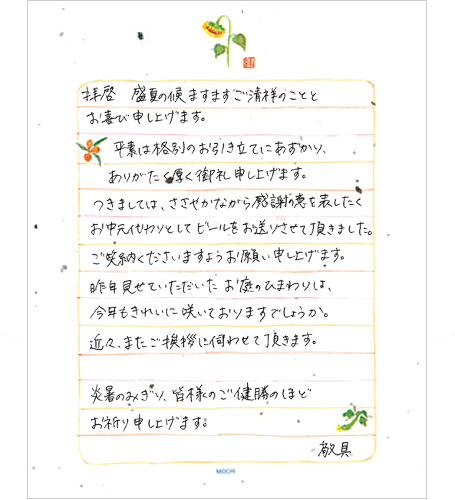 拝啓 盛夏の候ますますご清祥のことと
お喜び申し上げます。
平素は格別のお引き立てにあずかり、
ありがたく厚く御礼申し上げます。
つきましては、ささやかながら感謝の意を表したく
お中元代わりとしてビールをお送りさせて頂きました。
ご笑納くださいますようお願い申し上げます。
昨年見せていただいたお庭のひまわりは、
今年もきれいに咲いておりますでしょうか。
近々、またご挨拶に伺わせて頂きます。
炎暑のみぎり、皆様のご健勝のほど
お祈り申し上げます。
敬具
MIDORI